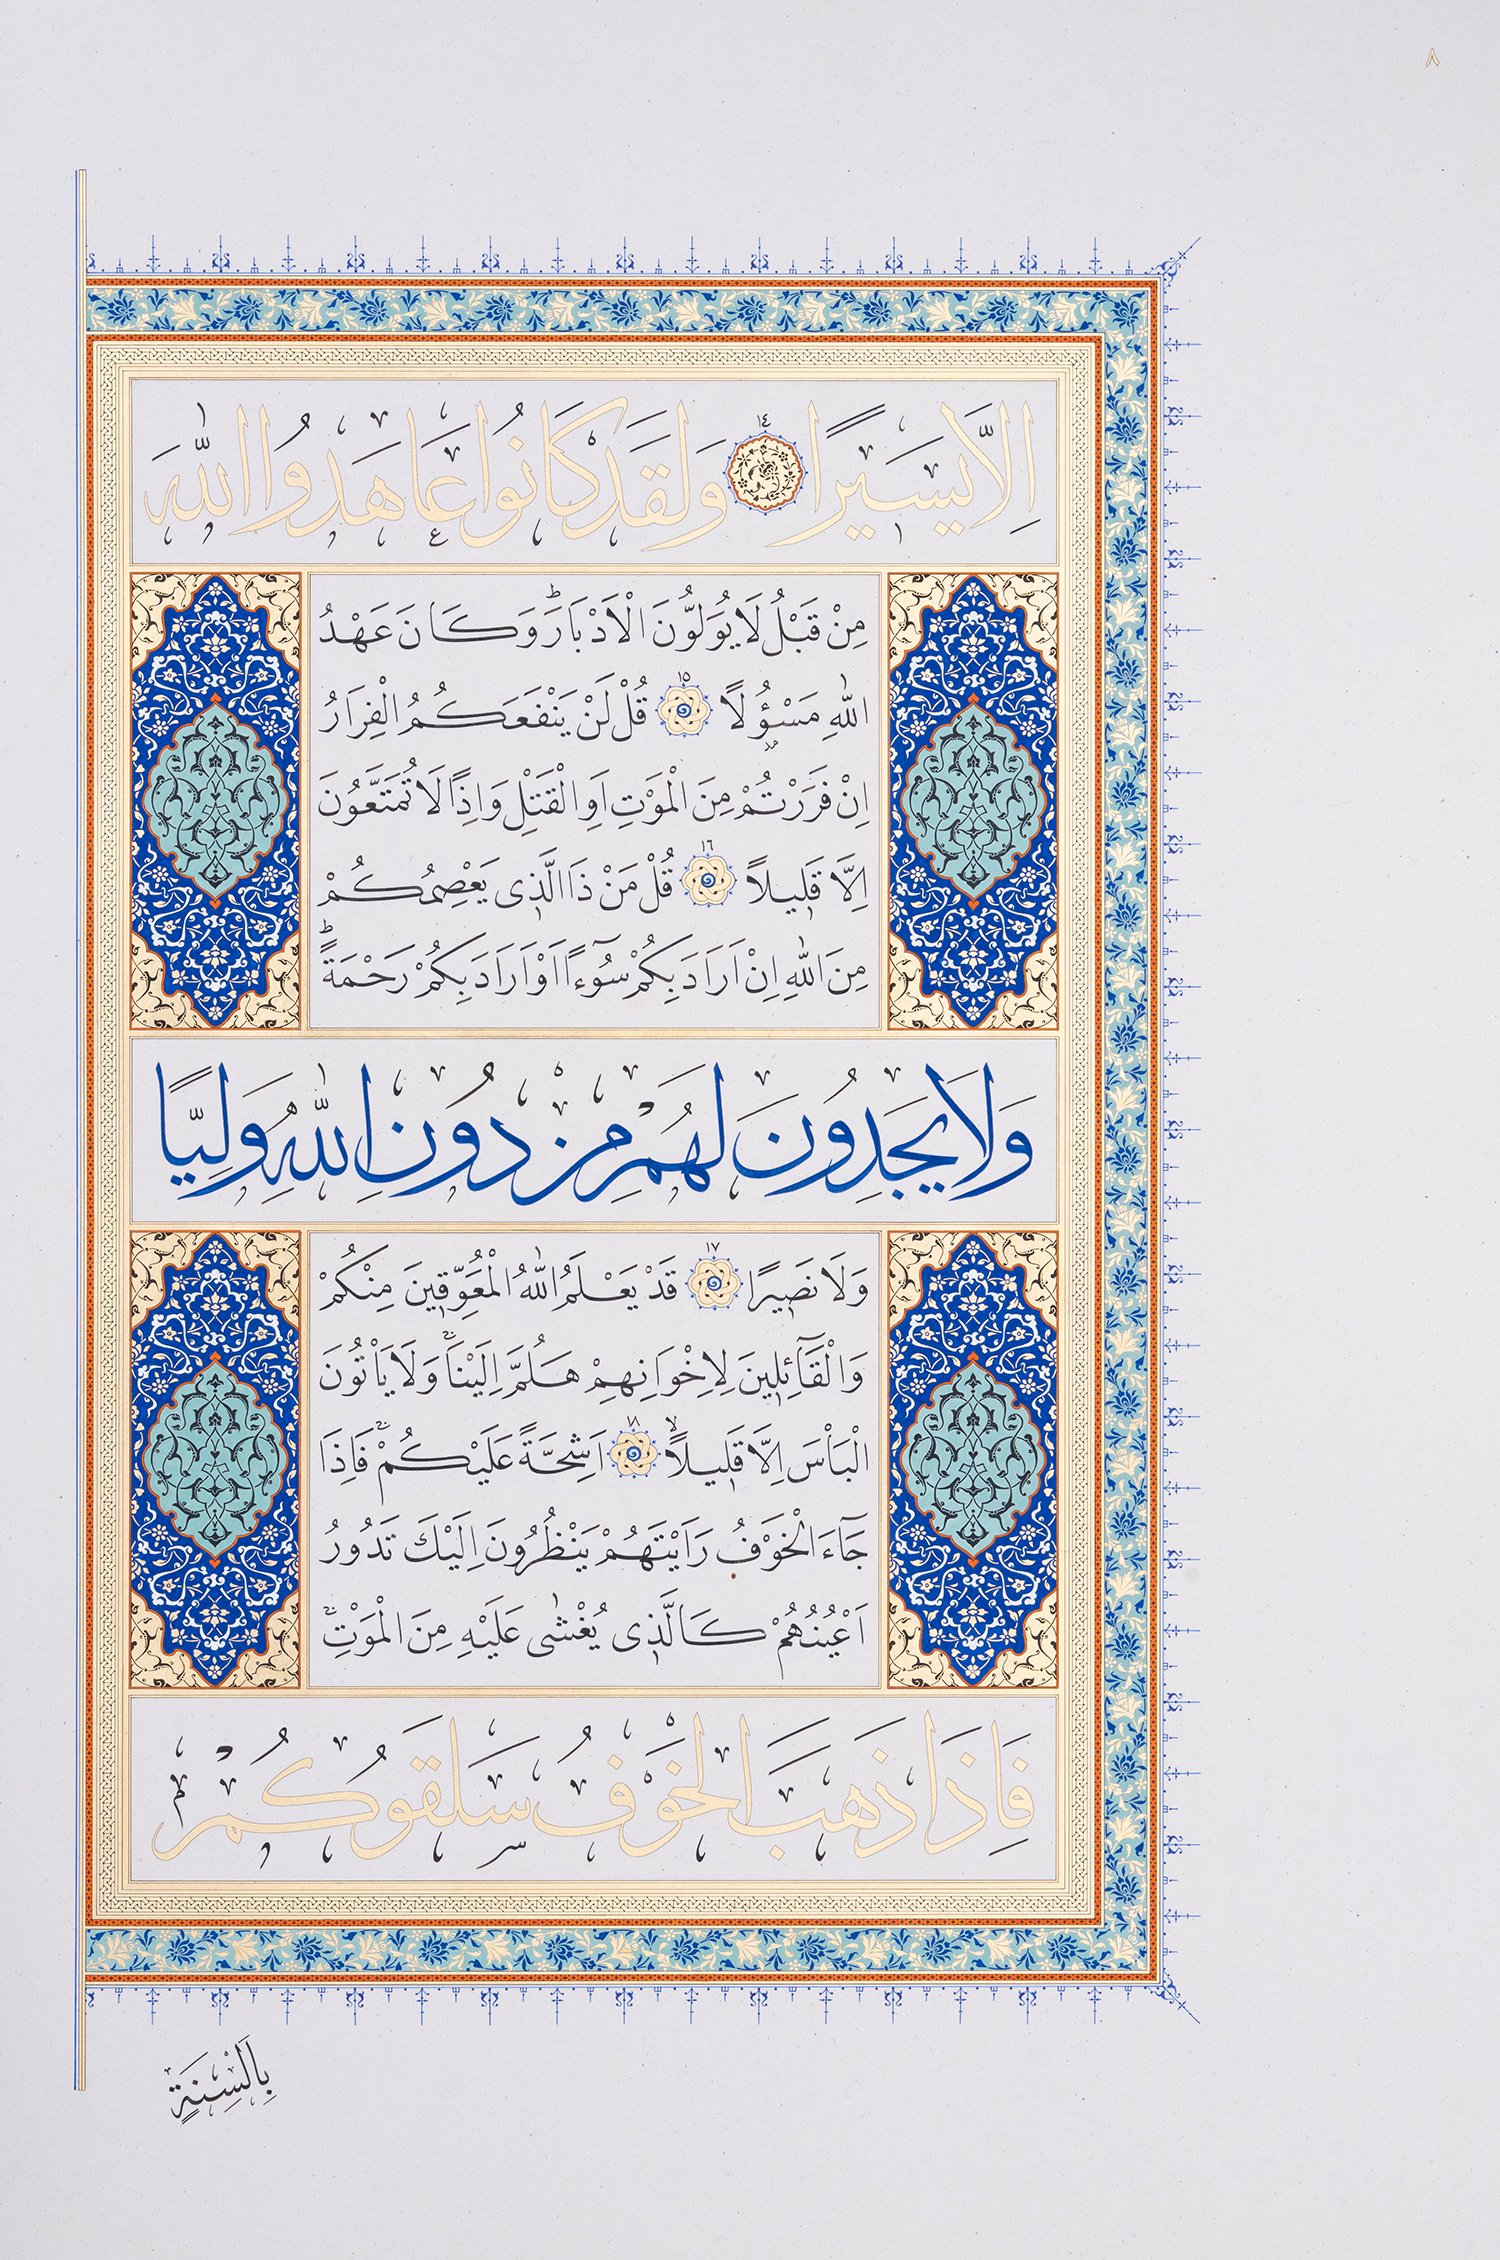 ٨
اِلَّا يَسِيرًا ١٤ وَلَقَدْ كَانُوا عَاهَدُوا اللّٰهَ
مِنْ قَبْلُ لَا يُوَلُّونَ الْاَدْبَارَۜ وَكَانَ عَهْدُ
اللّٰهِ مَسْؤُلًا ١٥ قُلْ لَنْ يَنْفَعَكُمُ الْفِرَارُ
اِنْ فَرَرْتُمْ مِنَ الْمَوْتِ اَوِ الْقَتْلِ وَاِذًا لَا تُمَتَّعُونَ
اِلَّا قَلِيلًا ١٦ قُلْ مَنْ ذَا الَّذِى يَعْصِمُكُمْ
مِنَ اللّٰهِ اِنْ اَرَادَ بِكُمْ سُٓوءًا اَوْ اَرَادَ بِكُمْ رَحْمَةًۜ
وَلَا يَجِدُونَ لَهُمْ مِنْ دُونِ اللّٰهِ وَلِيًّا
وَلَا نَصِيرًا ١٧ قَدْ يَعْلَمُ اللّٰهُ الْمُعَوِّقِينَ مِنْكُمْ
وَالْقَٓائِلِينَ لِاِخْوَانِهِمْ هَلُمَّ اِلَيْنَاۚ وَلَا يَاْتُونَ
الْبَاْسَ اِلَّا قَلِيلًاۙ ١٨ اَشِحَّةً عَلَيْكُمْۚ فَاِذَا
جَٓاءَ الْخَوْفُ رَاَيْتَهُمْ يَنْظُرُونَ اِلَيْكَ تَدُورُ
اَعْيُنُهُمْ كَالَّذِى يُغْشٰى عَلَيْهِ مِنَ الْمَوْتِۚ
فَاِذَا ذَهَبَ الْخَوْفُ سَلَقُوكُمْ
بِاَلْسِنَةٍ